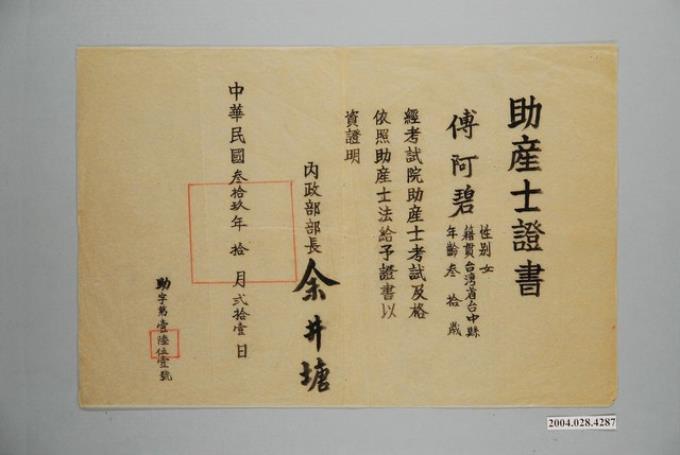 助產士證書
傅阿碧
性别女
籍貫台灣省台中縣
年齡叁拾歲
經考試院助產士考試及格
依照助產士法給予證書以
資證明
內政部部長 余井塘
中華民國叁拾玖年拾月弍拾壹日
助字第壹陸伍壹號
2004.028.4287